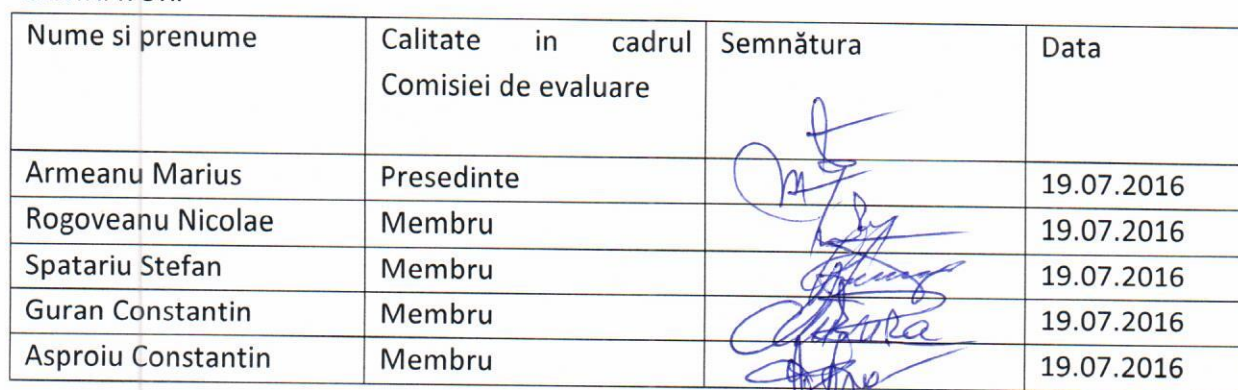 Nume si prenume
Calitate in cadrul
Comisiei de evaluare
Semnătura
Data
Armeanu Marius Presedinte 19.07.2016
Rogoveanu Nicolae Membru 19.07.2016
Spatariu Stefan Membru 19.07.2016
Guran Constantin Membru 19.07.2016
Asproiu Constantin Membru 19.07.2016